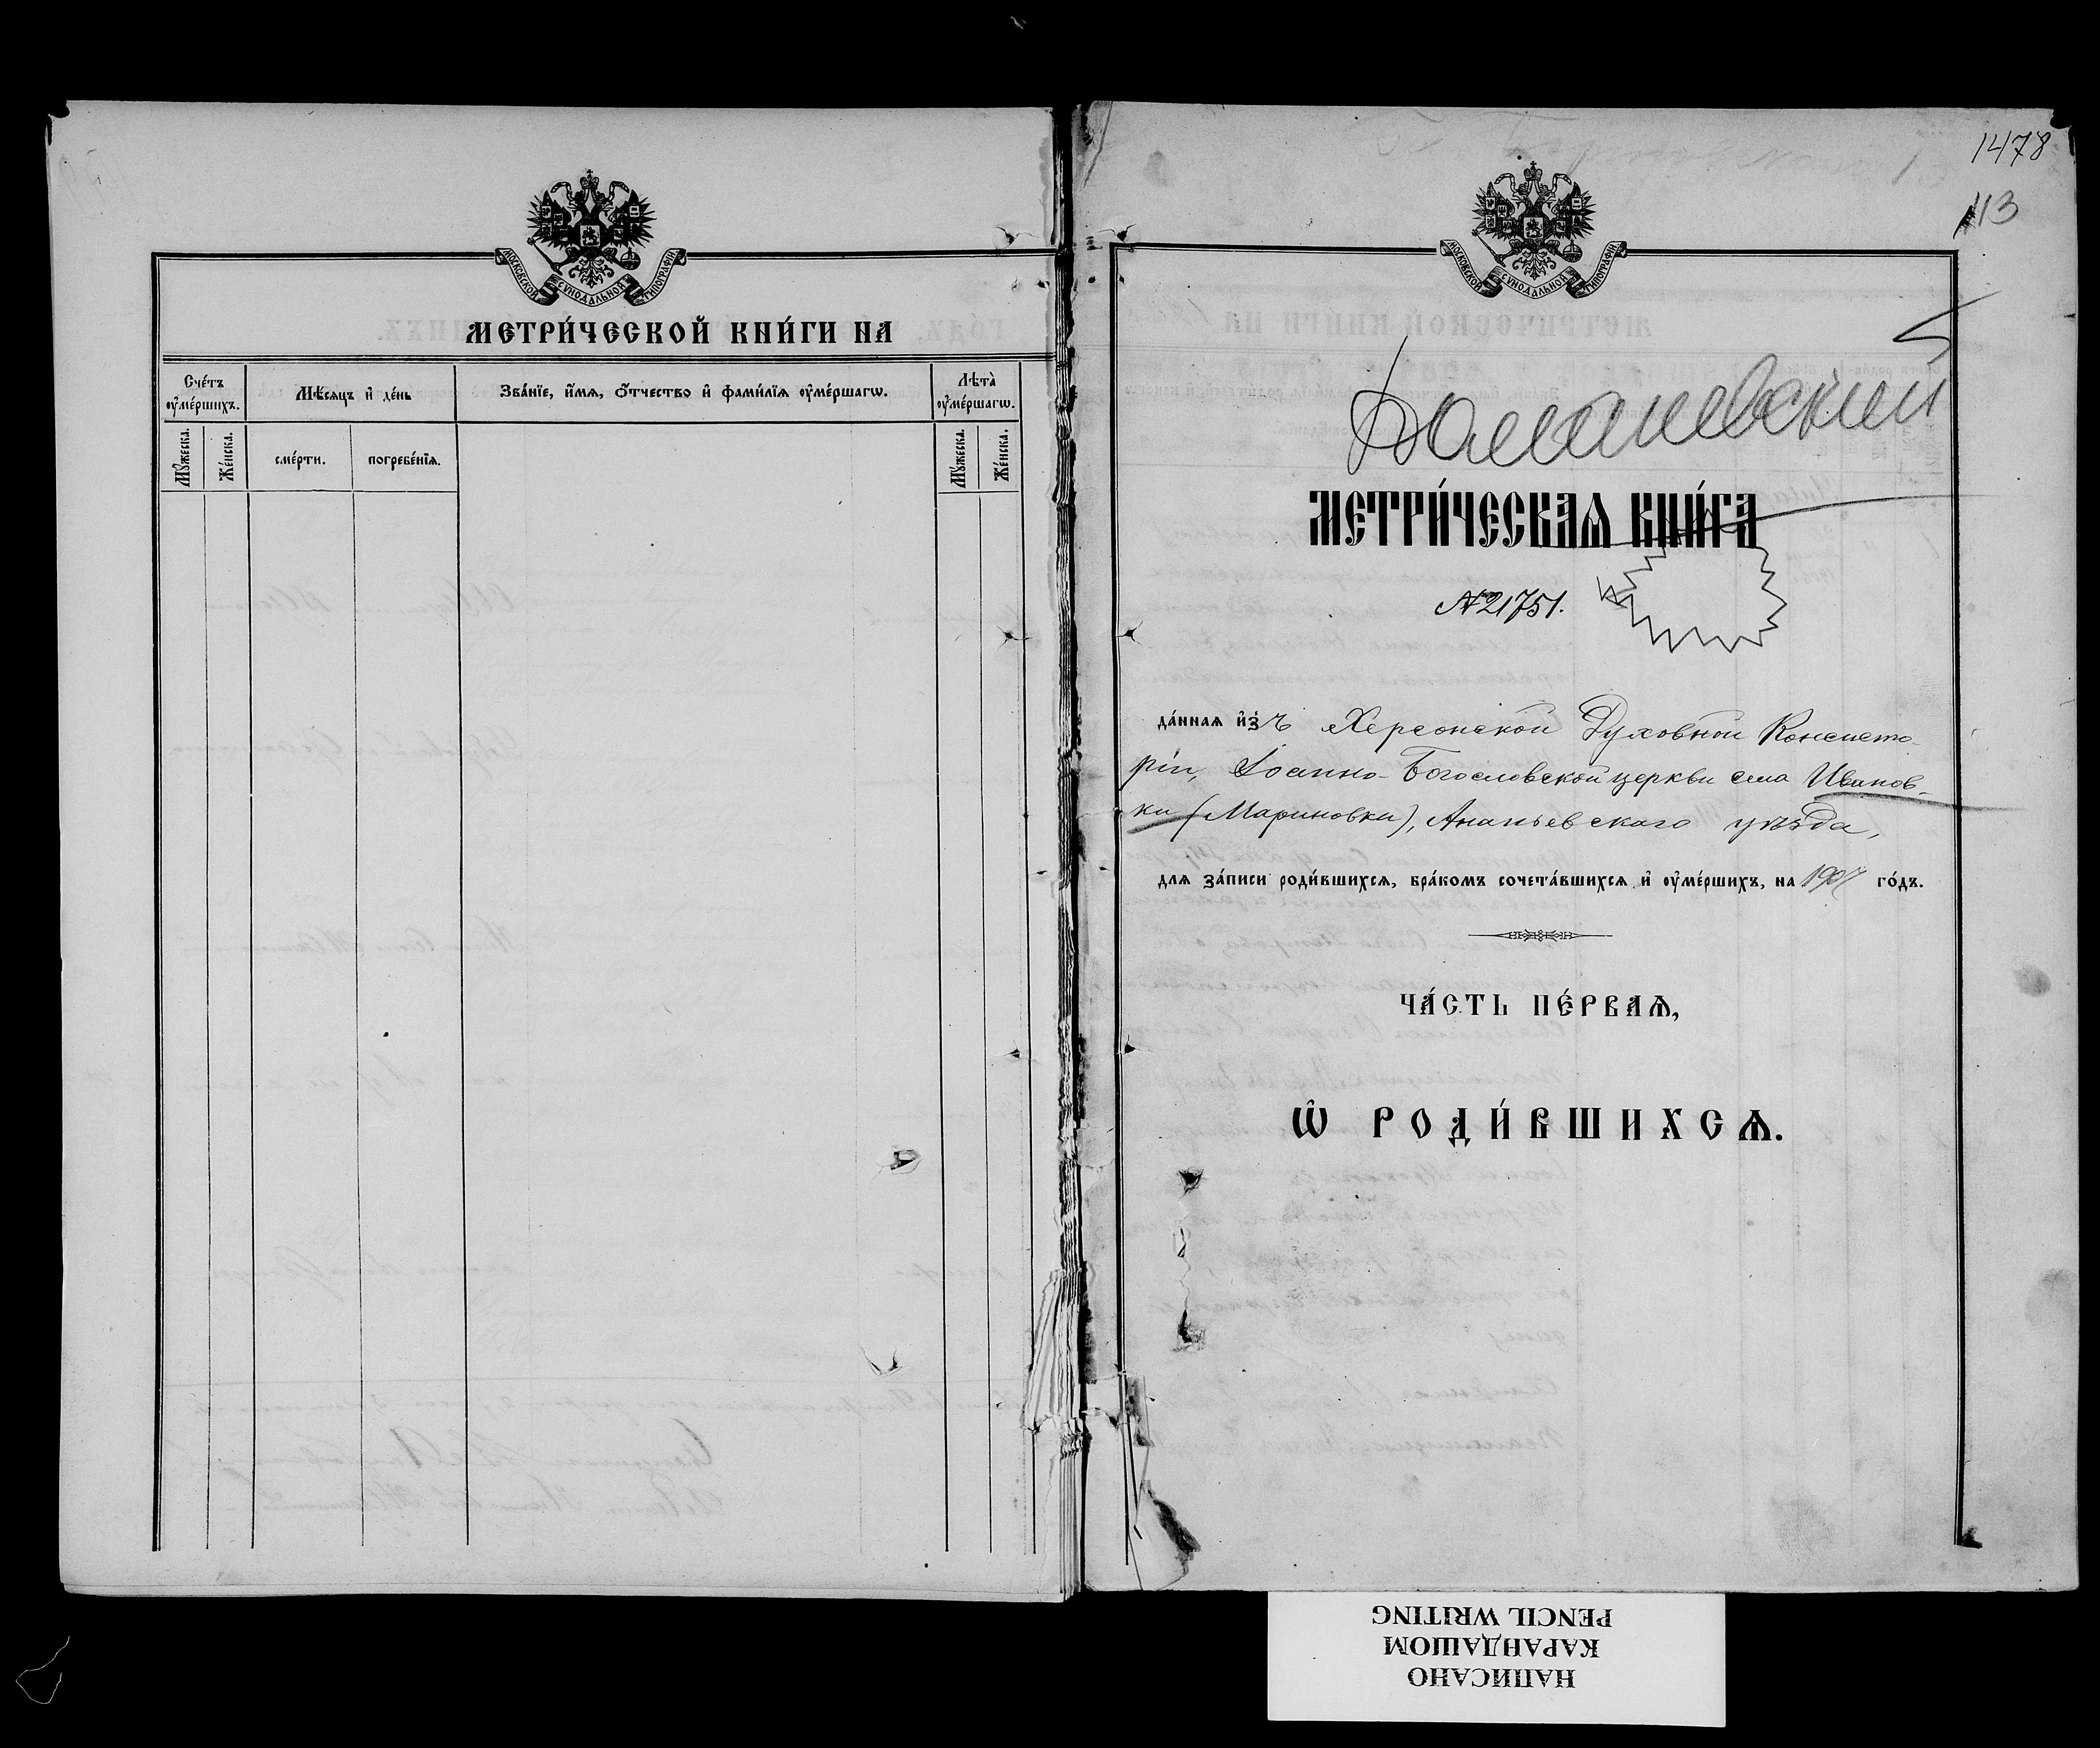 МОСКОВСКОЙ СѴНОДАЛЬНОЙ ТИПОГРАФІИ
МЕТРИ́ЧЕСКОЙ КНИ́ГИ НА
Счéтъ ᲂу҆мéршихъ.
Мѣ́сяцъ и҆ дéнь
Звáнїе, и҆́мѧ, ѻ҆́тчество и҆ фамѝлїѧ ᲂу҆мéршагѡ.
Лѣтà ᲂу҆мéршагѡ.
Мꙋ́жеска.
Жéнска.
смéрти.
погребéнїѧ.
Мꙋ́жеска.
Жéнска.
1478
113
МОСКОВСКОЙ СѴНОДАЛЬНОЙ ТИПОГРАФІИ
Доманевский
МЕТРИ́ЧЕСКАѦ КНИ́ГА
№ 21751.
дáннаѧ и҆зъ Херсонской Духовной Консисто-
ріи, Іоанно-Богословской церкви села Иванов-
ки (Мариновки), Ананьевскаго уѣзда,
длѧ зáписи роди́вшихсѧ, брáкомъ сочетáвшихсѧ и҆ ᲂу҆мéршихъ, на 1907 гóдъ.
ЧÁСТЬ ПÉРВАѦ,
Ѽ РОДИ́ВШИХСѦ.
НАПИСАНО
КАРАНДАШОМ
PENCIL WRITING